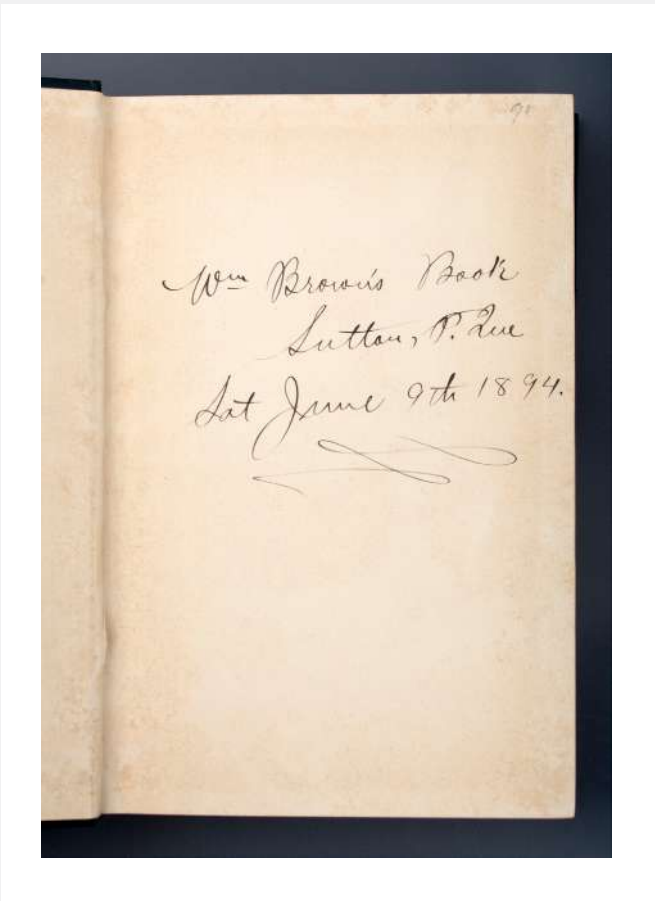 Wm Brown's Book
Sutton, P. Que
Sat June 9th 1894.